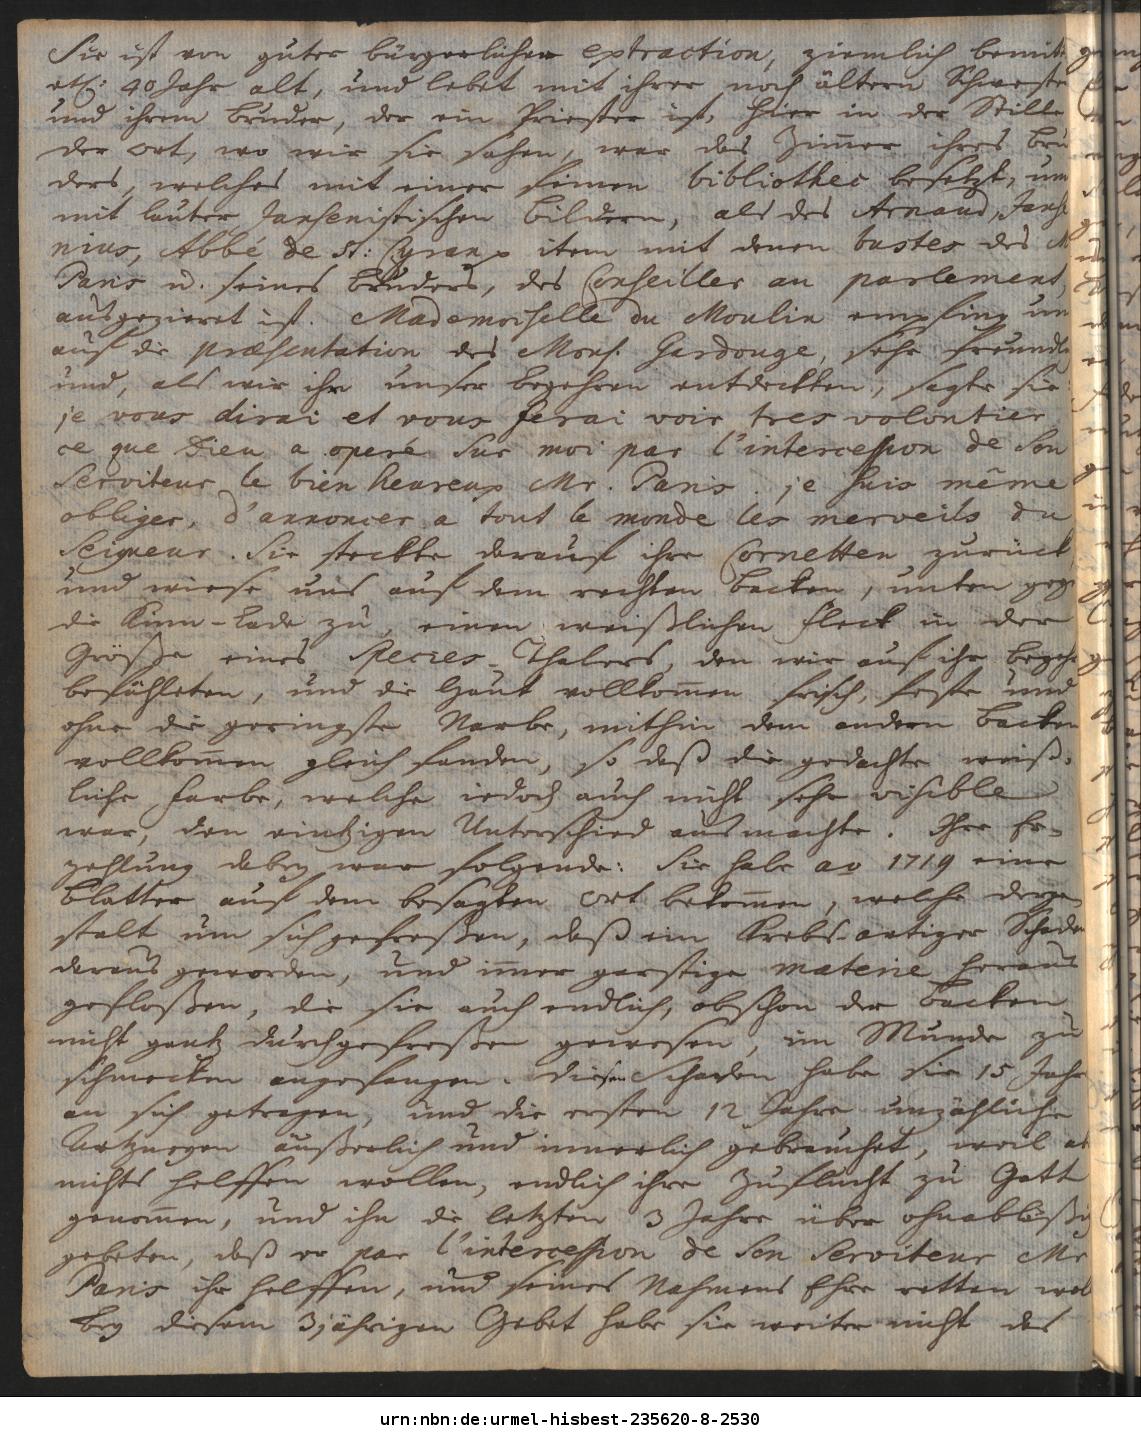 Sie ist von guter bürgerlicher extraction, ziemlich bemitt
etl: 40 Jahr alt, und lebet mit ihrer noch ältern Schwester
und ihrem Bruder, der ein Priester ist, hier in der Stille
der Ort, wo wir sie sahen, war das Zim̄er ihres Bru
ders, welches mit einer feinen bibliothec besetzt, und
mit lauter Jansenistischen Bildern, als des Arnaud, Janse
nius, Abbé de St: Cyran, item mit denen bustes des M
Paris u. seines Bruders, des Conseiller au parlement,
ausgezieret ist. Mademoiselle du Moulin empfing un
auf die præsentation des Mons. Gardouge, sehr freundl
und, als wir ihr unser Begehren entdeckten, sagte sie:
je vous dirai et vous ferai voir tres volontier
ce que Dieu a operé sur moi par l'intercession de son
Serviteur le bien heureux Mr. Paris. je suis même
obligée, d'annoncer a tout le monde les merveils du
Seigneur. Sie steckte darauf ihre Cornetten zurück
und wiese uns auf dem rechten Backen, unten geg
die Kinn-Lade zu, einen weißlichen Fleck in der
Größe eines Species-Thalers, den wir auf ihr Begehr
befühleten, und die Haut vollkom̄en frisch, feste und
ohne die geringste Narbe, mithin dem andern Backen
vollkom̄en gleich fanden, so daß die gedachte weiß-
liche Farbe, welche iedoch auch nicht sehr visible
war, den eintzigen Unterschied ausmachte. Ihre Er-
zehlung dabey war folgende: Sie habe ao 1719 eine
Blatter auf dem besagten Ort bekom̄en, welche derge
stalt um sich gefreßen, daß ein Krebs-artiger Schade
daraus geworden, und im̄er garstige materie heraus
gefloßen, die sie auch endlich, obschon der Backen
nicht gantz durchgefreßen gewesen, im Munde zu
schmecken angefangen. Diesen Schaden habe sie 15 Jahr
an sich getragen, und die ersten 12 Jahre unzähliche
Artzneyen äußerlich und innerlich gebrauchet, weil ab
nichts helffen wollen, endlich ihre Zuflucht zu Gott
genom̄en, und ihn die letzten 3 Jahre über ohnabläßig
gebeten, daß er par l'intercession de son Serviteur Mr
Paris ihr helffen, und seines Nahmens Ehre retten wol
Bey diesem 3jährigen Gebet habe sie weiter nicht das
urn:nbn:de:urmel-hisbest-235620-8-2530